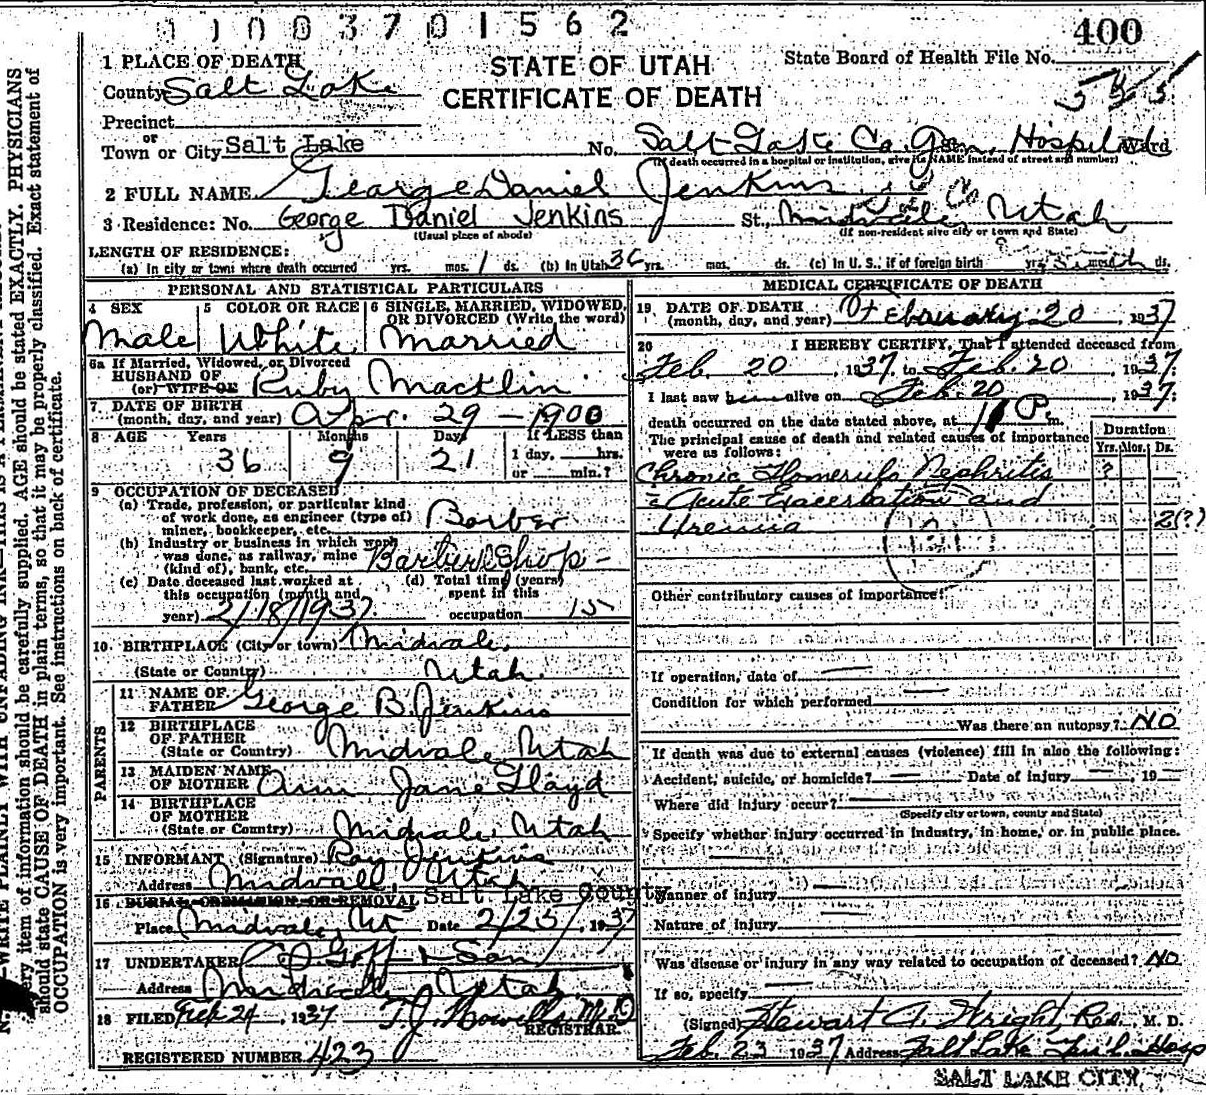 1 1 0 0 3 7 0 1 5 6 2
400
1 PLACE OF DEATH
STATE OF UTAH
State Board of Health File No.
County Salt Lake
CERTIFICATE OF DEATH
Precinct
or
Town or City Salt Lake No. Salt Lake Co. Gen. Hospital Ward
(If death occurred in a hospital or institution, give its NAME instead of street and number)
2 FULL NAME George Daniel Jenkins
3 Residence: No. George Daniel Jenkins St., Midvale, Utah
(Usual place of abode) (If non-resident give city or town and State)
LENGTH OF RESIDENCE:
(a) In city or town where death occurred yrs. mos. 1 ds. (b) In Utah 36 yrs. mos. ds. (c) In U. S., if of foreign birth yrs. mos. ds.
PERSONAL AND STATISTICAL PARTICULARS
4 SEX 5 COLOR OR RACE 6 SINGLE, MARRIED, WIDOWED, OR DIVORCED (Write the word)
Male White Married
6a If Married, Widowed, or Divorced
HUSBAND OF
(or) WIFE OF Ruby Macklin
7 DATE OF BIRTH
(month, day, and year) Apr. 29 - 1900
8 AGE Years Months Days If LESS than
36 9 21 1 day, hrs.
or min.?
9 OCCUPATION OF DECEASED
(a) Trade, profession, or particular kind
of work done, as engineer (type of)
miner, bookkeeper, etc. Barber
(b) Industry or business in which work
was done, as railway, mine
(kind of), bank, etc. Barber Shop -
(c) Date deceased last worked at
this occupation (month and
year) 2/18/1937
(d) Total time (years)
spent in this
occupation 15
10 BIRTHPLACE (City or town) Midvale,
(State or Country) Utah.
PARENTS
11 NAME OF
FATHER George B. Jenkins
12 BIRTHPLACE
OF FATHER
(State or Country) Midvale, Utah
13 MAIDEN NAME
OF MOTHER Ann Jane Floyd
14 BIRTHPLACE
OF MOTHER
(State or Country) Midvale, Utah
15 INFORMANT (Signature) Ray Jenkins
Address Midvale, Utah
16 BURIAL, CREMATION, OR REMOVAL Salt Lake County
Place Midvale, Ut Date 2/25/, 1937
17 UNDERTAKER Goff & Son
Address Midvale Utah
18 FILED Feb 24, 1937 T. J. Howells, M.D
REGISTRAR
REGISTERED NUMBER 423
MEDICAL CERTIFICATE OF DEATH
19 DATE OF DEATH
(month, day, and year) February 20, 1937
20 I HEREBY CERTIFY, That I attended deceased from
Feb. 20, 1937, to Feb. 20, 1937:
I last saw him alive on Feb. 20, 1937:
death occurred on the date stated above, at P. m.
The principal cause of death and related causes of importance
were as follows:
Duration
Yrs. Mos. Ds.
Chronic Nephritis ?
Acute Exacerbation and
Uremia 2(?)
Other contributory causes of importance:
If operation, date of
Condition for which performed
Was there an autopsy? No
If death was due to external causes (violence) fill in also the following:
Accident, suicide, or homicide? Date of injury , 19
Where did injury occur?
(Specify city or town, county and State)
Specify whether injury occurred in industry, in home, or in public place.
Manner of injury
Nature of injury
Was disease or injury in any way related to occupation of deceased? No
If so, specify
(Signed) Stewart A. Wright, Res., M. D.
Feb. 23 1937 Address Salt Lake Gen'l. Hosp
SALT LAKE CITY,
should state CAUSE OF DEATH in plain terms, so that it may be properly classified. Exact statement of
OCCUPATION is very important. See instructions on back of certificate.